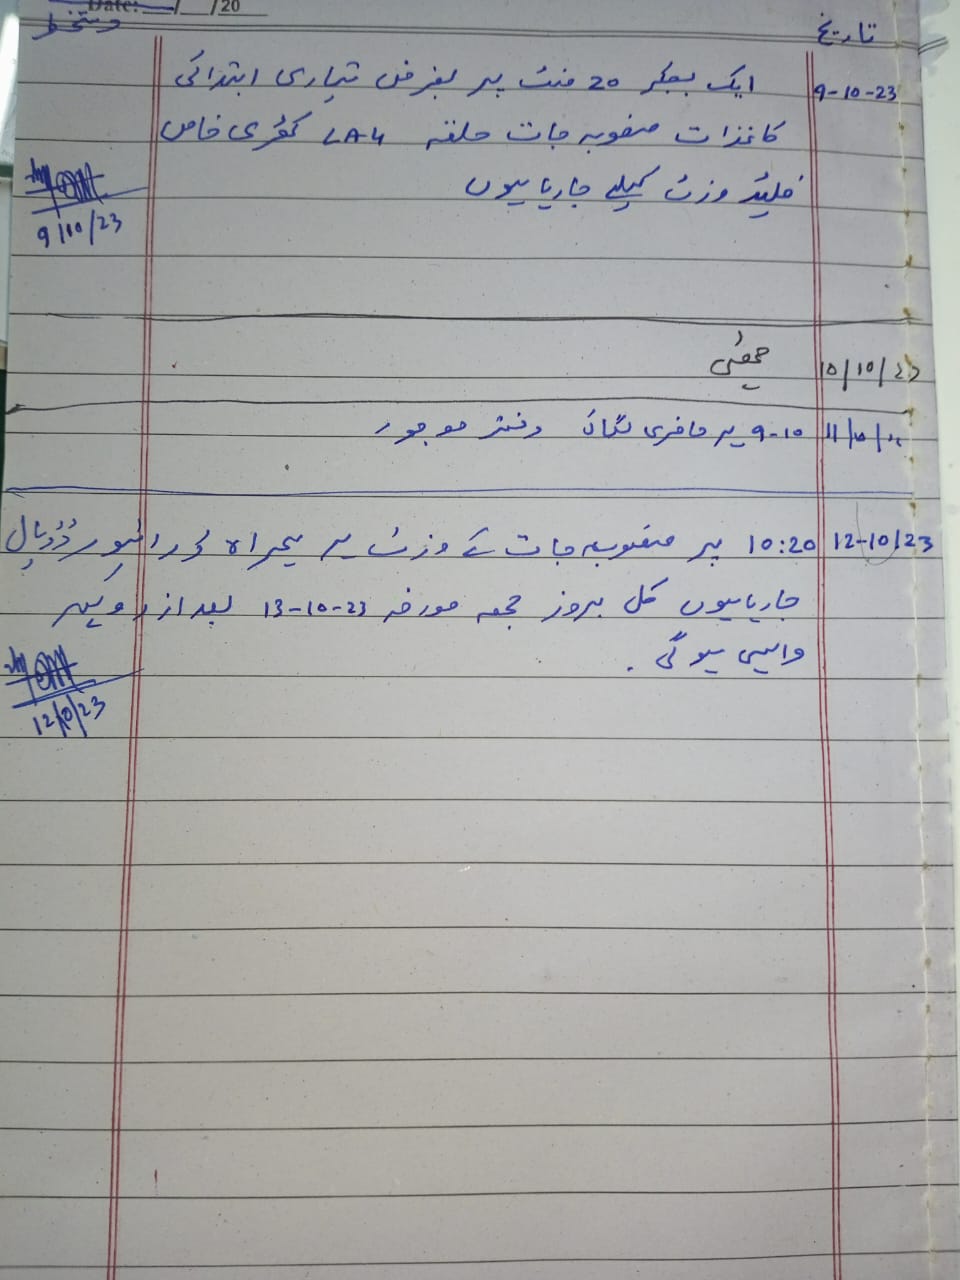 Date: / /20
تاریخ
دستخط
9-10-23
ایک بجکر 20 منٹ پر بغرض تیاری ابتدائی
کاغذات منصوبہ جات حلقہ LA-4 کھڑی خاص
فیلڈ وزٹ کیلئے جا رہا ہوں
9/10/23
10/10/23
چھٹی
11/10/
9-10 پر حاضری لگائی دفتر موجود
12-10/23
10:20 پر منصوبہ جات کے وزٹ پر ہمراہ ڈڈیال
جا رہا ہوں کل بروز جمعہ مورخہ 13-10-23 بعد از دوپہر
واپسی ہو گی .
12/0/23